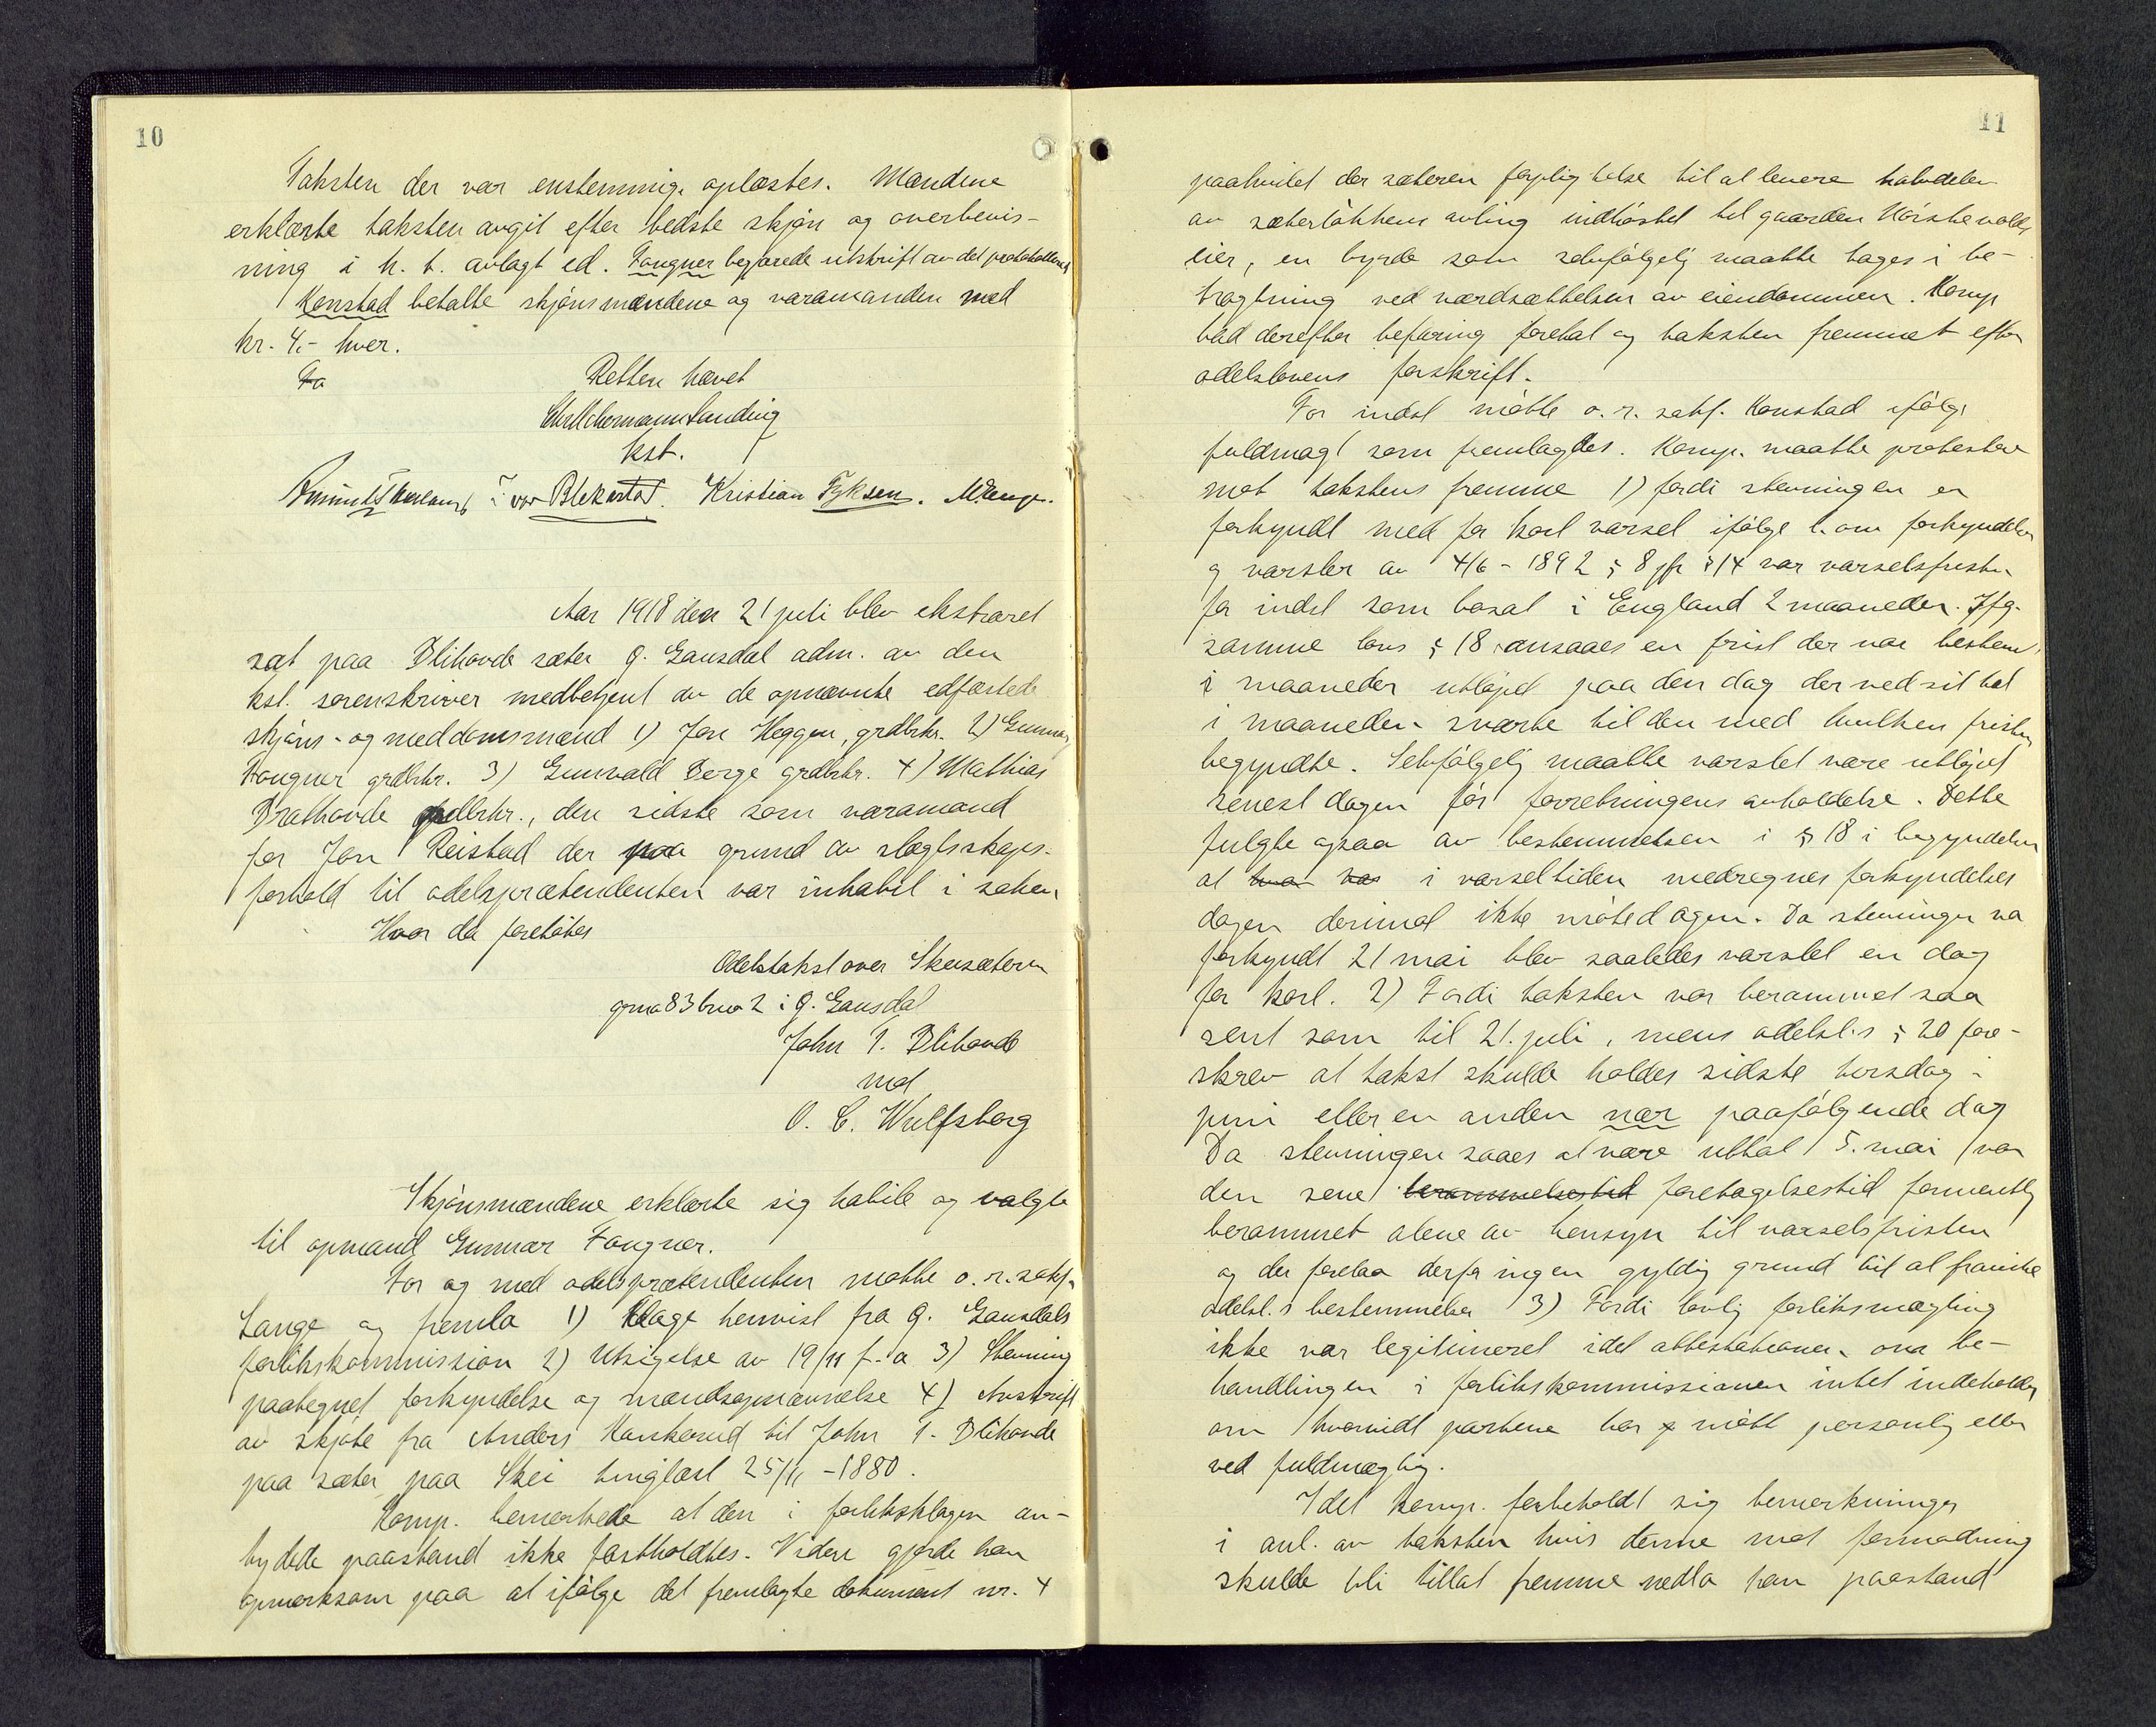 10
Taksten der var enstemmig oplæstes. Mændene
erklærte taksten avgit efter bedste skjøn og overbevis-
ning i h. t. avlagt ed. Fougner begjærede utskrift av det protokollerte
Konstad betalte skjønsmændene og varamanden med
kr. 4,- hver.
Fo
Retten hævet
kst.
Kristian Fyksen.
Aar 1918 den 21 juli blev ekstraret
sat paa Blihovde sæter Ø. Gausdal adm. av den
kst. sorenskriver medbetjent av de opnævnte edfæstede
skjøns- og meddomsmænd 1) Jon Heggen, grdbrkr. 2) Gunnar
Fougner grdbrkr. 3) Gunvald Berge grdbrkr. 4) Mathias
Brathovde grdbrkr., den sidste som varamand
for Jon Reistad der paa grund av slegtsskaps-
forhold til odelsprætendenten var inhabil i saken
Hvor da foretokes
Odelstakst over Skeisæteren
gno 83 bno 2 i Ø. Gausdal
John T. Blihovde
mot
O. C. Wulfsberg
Skjønsmændene erklærte sig habile og valgte
til opmand Gunnar Fougner.
For og med odelsprætendenten møtte o.r. sakf.
Lange og fremla 1) Klage henvist fra Ø. Gausdals
forlikskommission 2) Utsigelse av 19/11 f. a 3) Stevning
paategnet forkyndelse og mandsopnævnelse 4) Avskrift
av skjøte fra Anders Kankerud til John T. Blihovde
paa sæter paa Skei tinglæst 25/11 - 1880.
Komp. bemerkede at den i forliksklagen an-
tydede paastand ikke fastholdtes. Videre gjorde han
opmerksom paa at ifølge det fremlagte dokument nr. 4
11
paahvilet der sæteren forpligtelse til at levere halvdelen
av sæterløkkens avling indhøstet til gaarden Kørstevolds
eier, en byrde som selvfølgelig maatte tages i be-
tragtning ved værdsættelsen av eiendommen. Komp
bad derefter befaring foretat og taksten fremmet efter
odelslovens forskrift.
For indst møtte o.r. sakf. Konstad ifølge
fuldmagt som fremlagdes. Komp. maatte protestere
mot takstens fremme 1) fordi stevningen er
forkyndt med for kort varsel ifølge l. om forkyndelser
og varsler av 4/6 - 1892 § 8 jfr § 14 var varselsfristen
for indst som bosat i England 2 maaneder. Ifg.
samme lovs § 18 ansaaes en frist der var bestemt
i maaneder utløpet paa den dag der ved sit tal
i maaneden svarte til den med hvilken fristen
begyndte. Selvfølgelig maatte varslet være utløpet
senest dagen før forretningens avholdelse. Dette
fulgte ogsaa av bestemmelsen i § 18 i begyndelsen
at i varseltiden medregnes forkyndelses
dagen derimot ikke møtedagen. Da stevningen va
forkyndt 21 mai blev saaledes varslet en dag
for kort. 2) Fordi taksten var berammet saa
sent som til 21. juli, mens odelsl.s § 20 fore-
skrev at takst skulde holdes sidste torsdag i
juni eller en anden nær paafølgende dag
Da stevningen saaes at være uttat 5. mai var
den sene berammelsestid foretagelsestid formentlig
berammet alene av hensyn til varselsfristen
og der forelaa derfor ingen gyldig grund til at fravike
odelsl.s bestemmelse 3) Fordi lovlig forliksmægling
ikke var legitimeret idet attestationen om be-
handlingen i forlikskommissionen intet indeholder
om hvorvidt parterne har møtt personlig eller
ved fuldmægtig.
Idet komp. forbeholdt sig bemerkninger
i anl. av taksten hvis denne mot formodning
skulde bli tillat fremme nedla han paastand